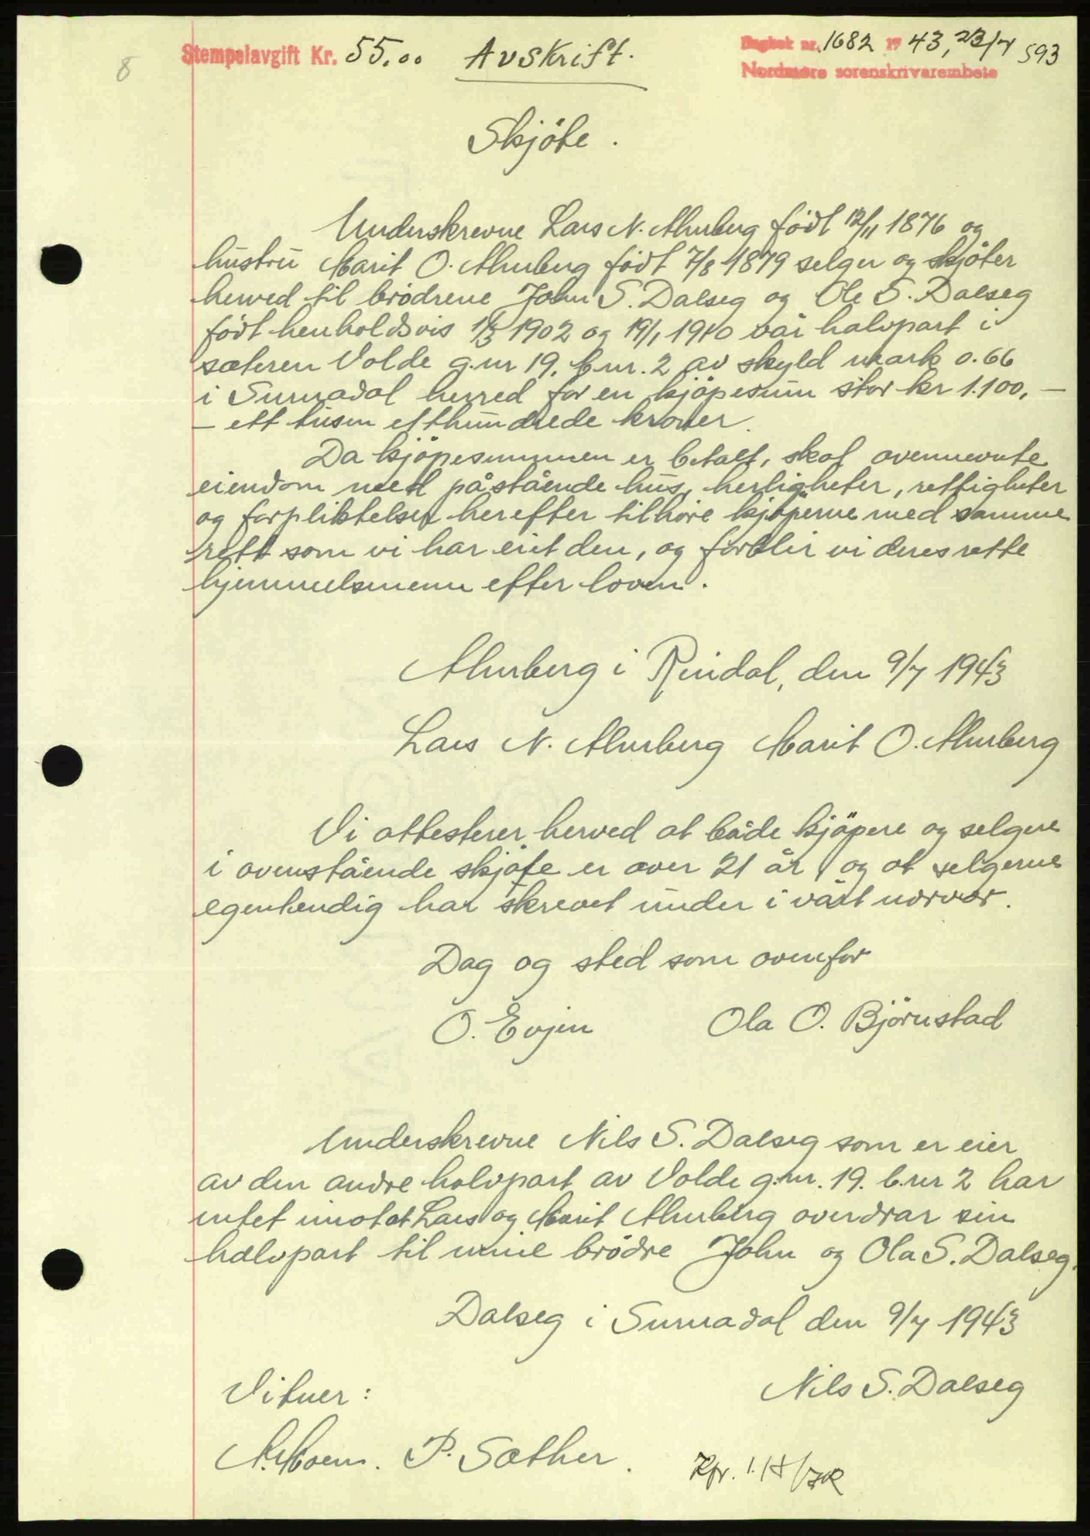 8
Stempelavgift Kr. 55.00 Avskrift.
Dagbok nr. 1682 1943, 23/7 593
Nordmøre sorenskrivarembete
Skjöte.
Underskrevne Lars N. Almberg født 12/11 1876 og
hustru Marit O. Almberg født 7/8 1879 selger og skjöter
herved til brödrene John S. Dalseg og Ole S. Dalseg
født henholdsvis 1902 og 19/1 1910 vår halvpart i
sæteren Volde g.nr 19. b.nr. 2 av skyld mark 0.66
i Surnadal herred for en kjöpesum stor kr 1.100,-
- ett tusen etthundrede kroner.
Da kjöpesummen er betalt, skal ovennevnte
eiendom med påstående hus, herligheter, rettigheter
og forpliktelser herefter tilhöre kjöperne med samme
rett som vi har eiet den, og forblir vi deres rette
hjemmelsmenn efter loven.
Almberg i Rindal, den 9/7 1943
Lars N. Almberg Marit O. Almberg
Vi attesterer herved at både kjöpere og selgere
i ovenstående skjöte er over 21 år, og at selgerne
egenhendig har skrevet under i vårt nærvær.
Dag og sted som ovenfor
O. Evjen Ola O. Björnstad
Underskrevne Nils S. Dalseg som er eier
av den andre halvpart av Volde g.nr. 19. b.nr 2 har
intet imot at Lars og Marit Almberg overdrar sin
halvpart til mine brödre John og Ola S. Dalseg.
Dalseg i Surnadal den 9/7 1943
Vitner: Nils S. Dalseg
A. Moen. P. Sæther.